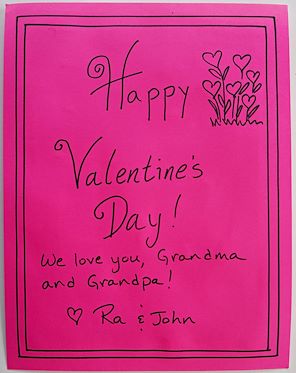 Happy
Valentine's
Day!
We love you, Grandma
and Grandpa!
♡ Ra & John